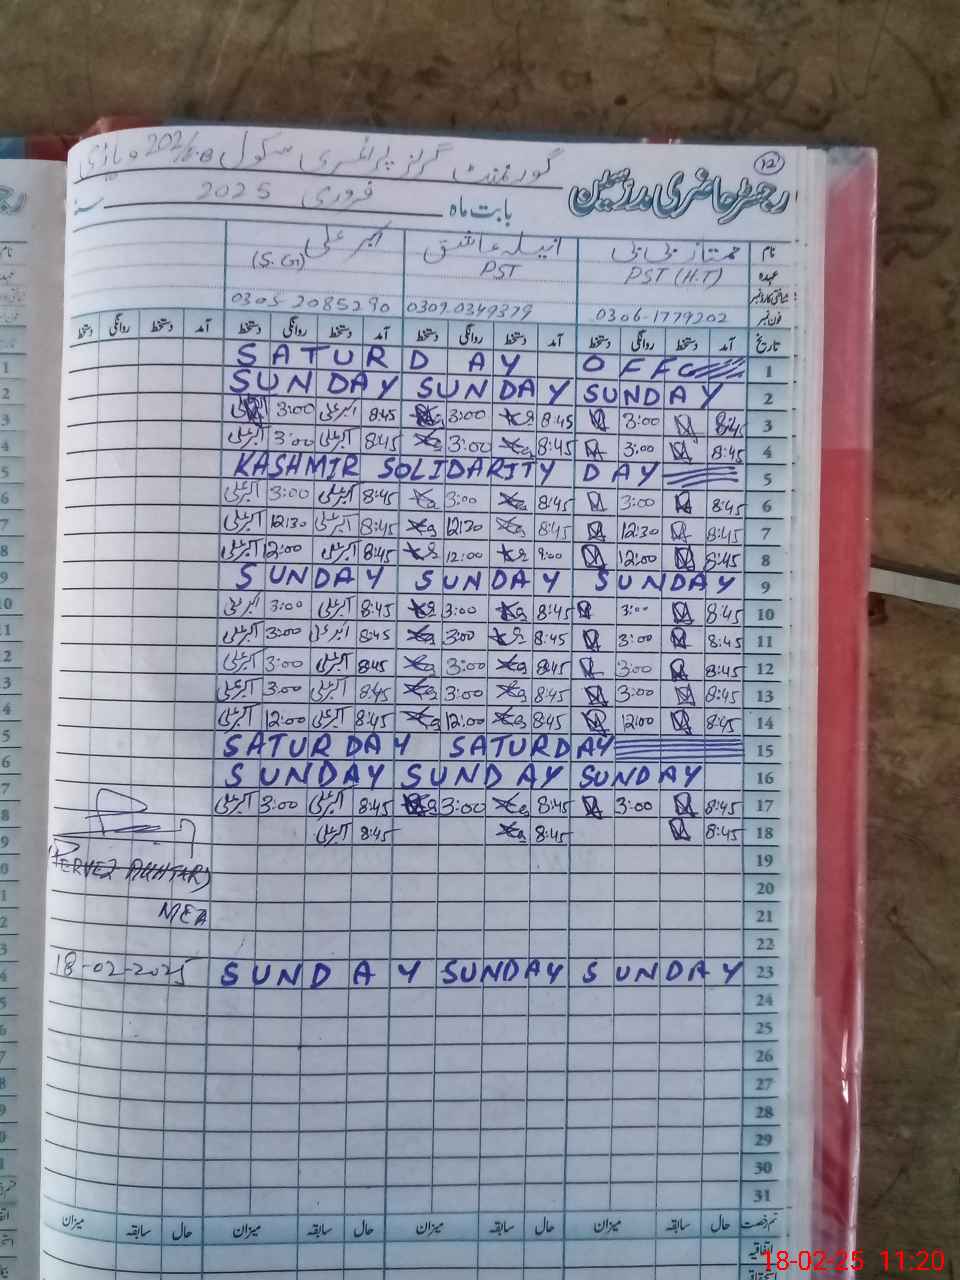 گورنمنٹ گرلز پرائمری سکول 202/E.B وہاڑی
12
رجسٹر حاضری مدرسین
بابت ماہ فروری 2025 سنہ
نام ممتاز بی بی انیلہ عاشق اکبر علی
عہدہ PST (H.T) PST (S.G)
شناختی کارڈ نمبر
فون نمبر 0306-1779202 0309-0349379 0305-2085290
تاریخ آمد دستخط روانگی دستخط آمد دستخط روانگی دستخط آمد دستخط روانگی دستخط آمد دستخط روانگی دستخط
1 SATURDAY OFF
2 SUNDAY SUNDAY SUNDAY
3 8:45 3:00 8:45 3:00 8:45 اکبر علی 3:00
4 8:45 3:00 8:45 3:00 8:45 اکبر علی 3:00 اکبر علی
5 KASHMIR SOLIDARITY DAY
6 8:45 3:00 8:45 3:00 8:45 اکبر علی 3:00 اکبر علی
7 8:45 12:30 8:45 12:30 8:45 اکبر علی 12:30 اکبر علی
8 8:45 12:00 9:00 12:00 8:45 اکبر علی 12:00 اکبر علی
9 SUNDAY SUNDAY SUNDAY
10 8:45 3:00 8:45 3:00 8:45 اکبر علی 3:00 اکبر علی
11 8:45 3:00 8:45 3:00 8:45 اکبر علی 3:00 اکبر علی
12 8:45 3:00 8:45 3:00 8:45 اکبر علی 3:00 اکبر علی
13 8:45 3:00 8:45 3:00 8:45 اکبر علی 3:00 اکبر علی
14 8:45 12:00 8:45 12:00 8:45 اکبر علی 12:00 اکبر علی
15 SATURDAY SATURDAY
16 SUNDAY SUNDAY SUNDAY
17 8:45 3:00 8:45 3:00 8:45 اکبر علی 3:00 اکبر علی
18 8:45 8:45 8:45 اکبر علی
19
PERVEZ AKHTAR
20
21 MEA
22
23 SUNDAY SUNDAY SUNDAY 18-02-2025
24
25
26
27
28
29
30
31
قسم رخصت حال سابقہ میزان حال سابقہ میزان حال سابقہ میزان حال سابقہ میزان
اتفاقیہ
استحقاقیہ
18-02-25 11:20